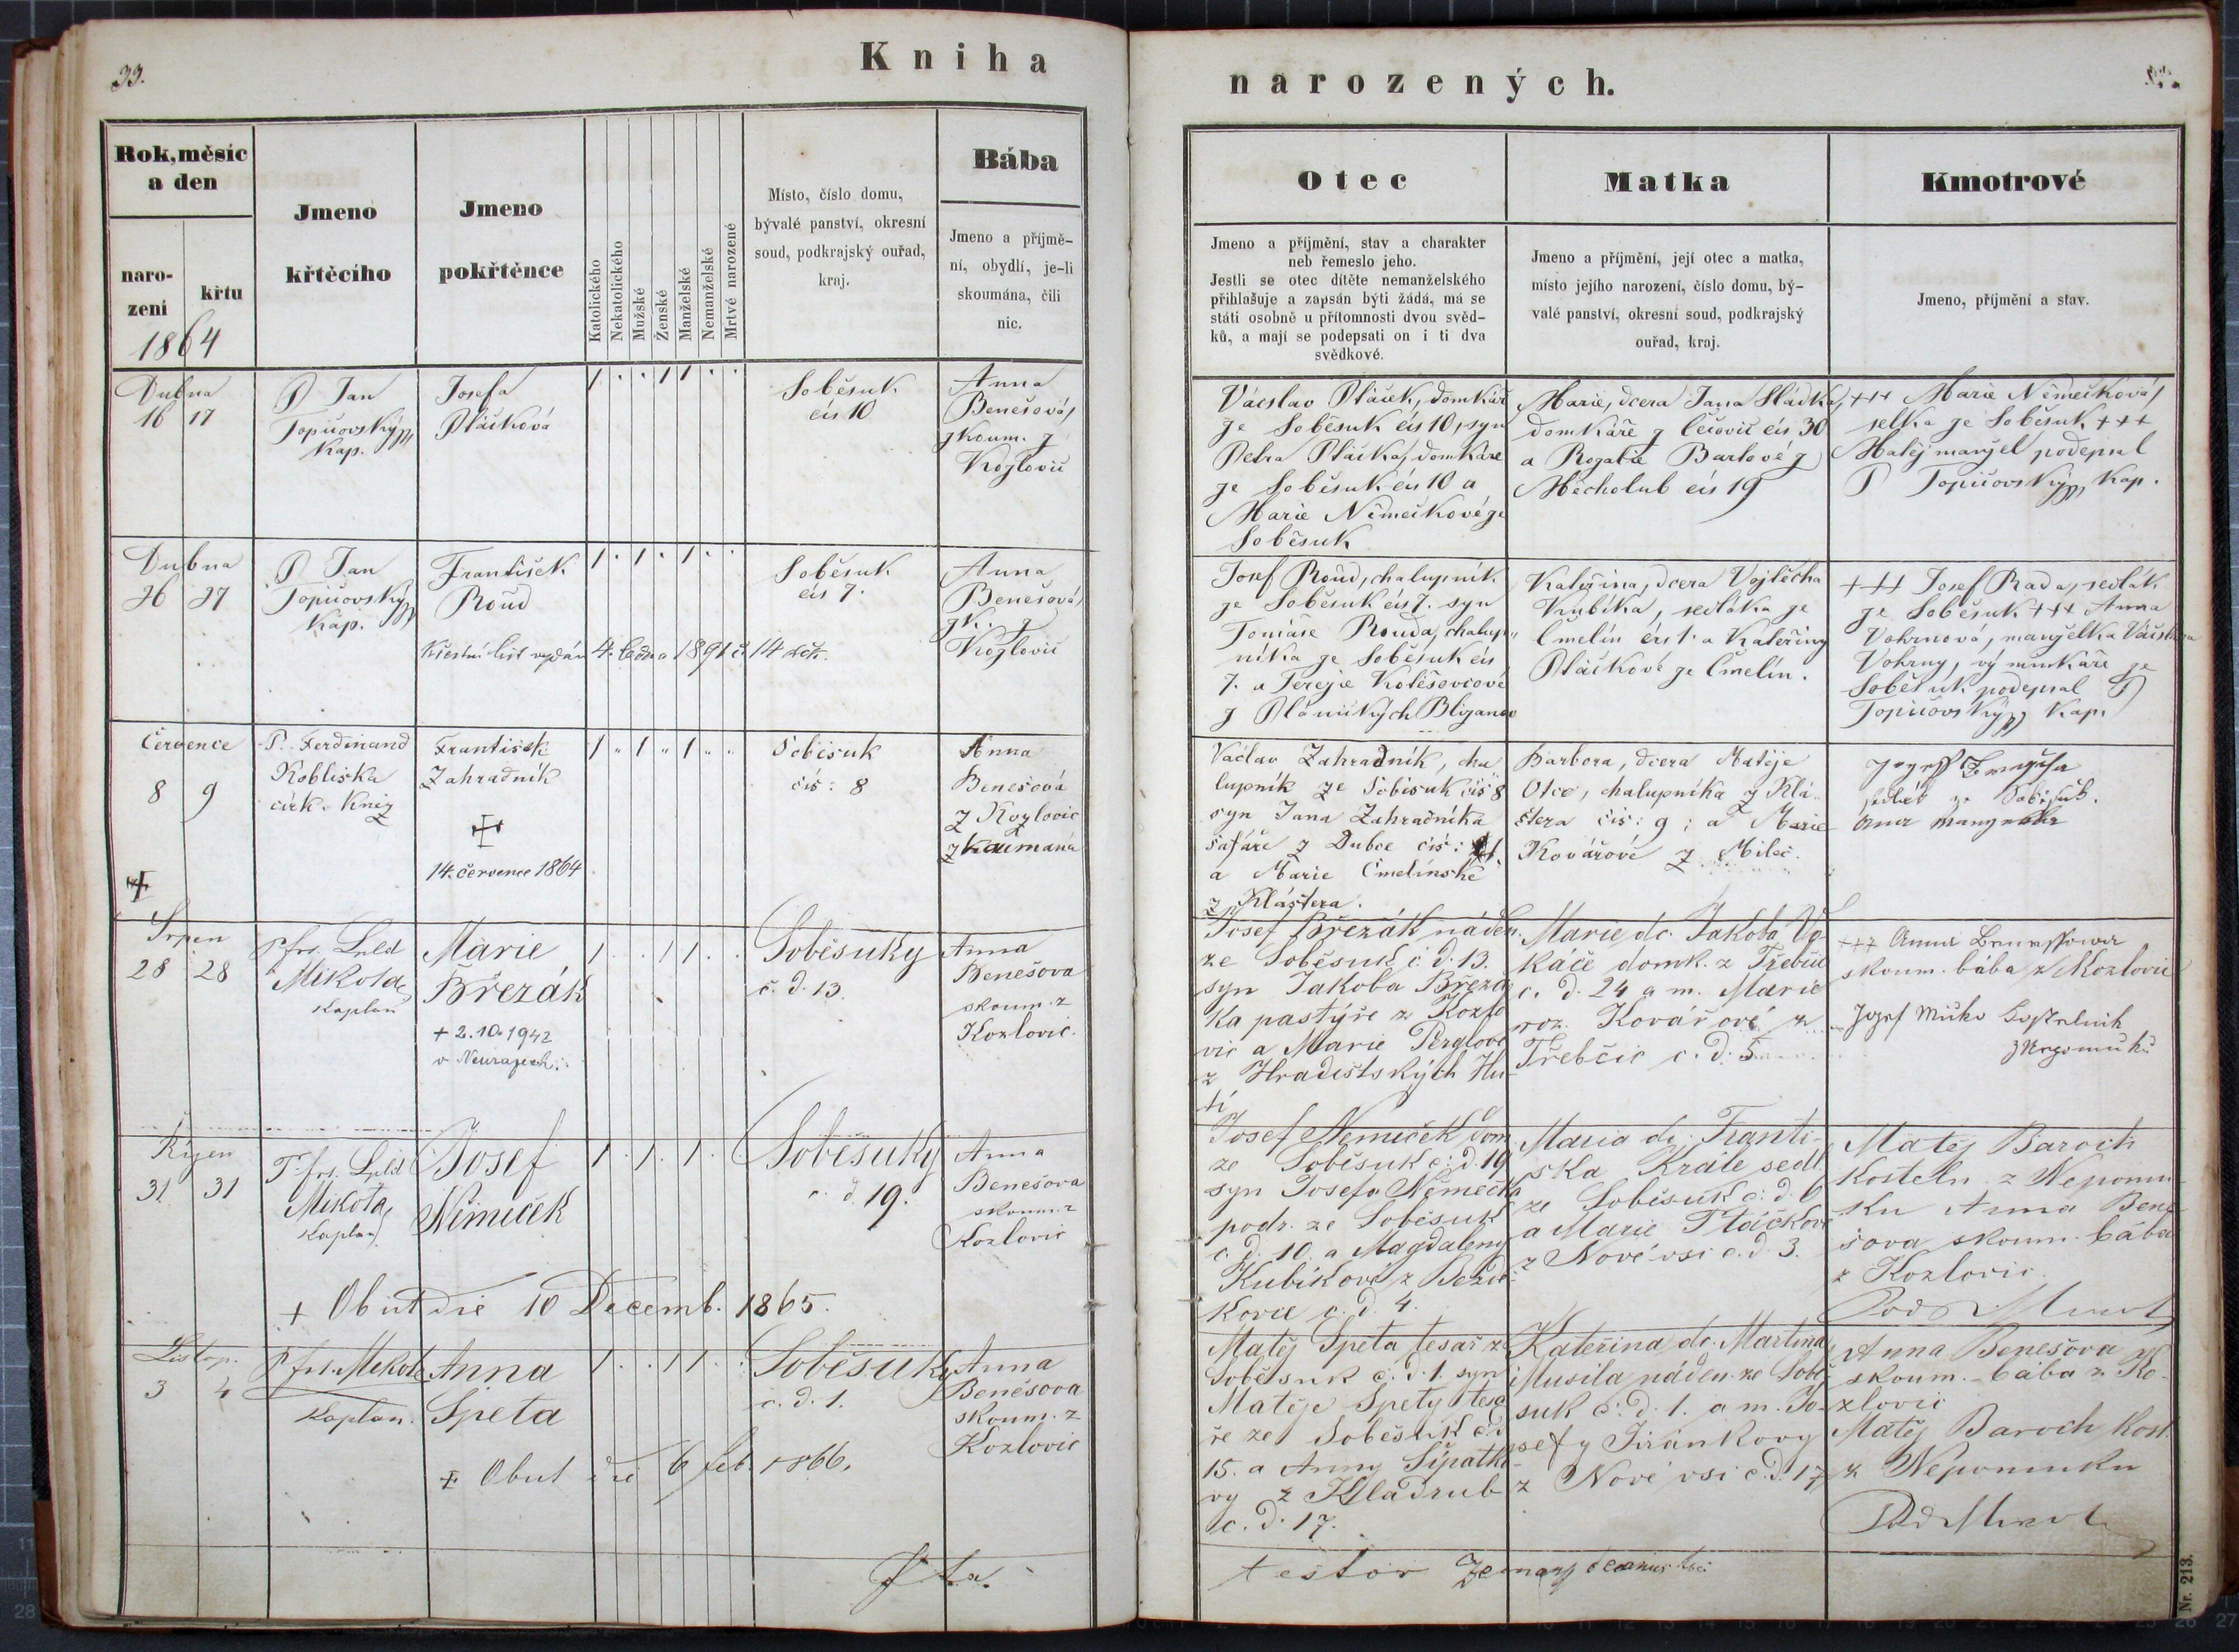 33.
Kniha
narozených.
Rok, měsíc
a den
naro-
zení
křtu
1864
Jmeno
křtěcího
Jmeno
pokřtěnce
Katolického
Nekatolického
Mužské
Ženské
Manželské
Nemanželské
Mrtvé narozené
Místo, číslo domu,
bývalé panství, okresní
soud, podkrajský ouřad,
kraj.
Bába
Jmeno a příjmě-
ní, obydlí, je-li
skoumána, čili
nic.
Otec
Jmeno a příjmění, stav a charakter
neb řemeslo jeho.
Jestli se otec dítěte nemanželského
přihlašuje a zapsán býti žádá, má se
státi osobně u přítomnosti dvou svěd-
ků, a mají se podepsati on i ti dva
svědkové.
Matka
Jmeno a příjmění, její otec a matka,
místo jejího narození, číslo domu, bý-
valé panství, okresní soud, podkrajský
ouřad, kraj.
Kmotrové
Jmeno, příjmění a stav.
Dubna
16 17
P Jan
Topičovský
Kap.
Josefa
Ptáčková
1 . . 1 1 . .
Soběsuk
čís 10
Anna
Benešová,
zkoum. z
Kozlovic
Václav Ptáček, domkář
ze Soběsuk čís 10, syn
Petra Ptáčka, domkáře
ze Soběsuk čís 10 a
Marie Němečkové ze
Soběsuk
Marie, dcera Jana Sládka,
domkáře z čečovic čís 30
a Rozalie Bartové z
Měcholub čís 19
+++ Marie Němečková,
selka ze Soběsuk +++
Matěj manžel podepsal
P Topičovský Kap.
Dubna
26 27
P Jan
Topičovský
Kap.
František
Roud
Křestní list vydán 4. ledna 1891 č. 14
1 . 1 . 1 . .
Soběsuk
čís 7.
Anna
Benešová,
zk. z
Kozlovic
Josef Roud, chalupník
ze Soběsuk čís 7. syn
Tomáše Rouda, chalup-
níka ze Soběsuk čís
7. a Terezie Kotěšovcové
z Plánických
Kateřina, dcera Vojtěcha
Kubíka, sedláka ze
Čmelín čís 1. a Kateřiny
Ptáčkové ze Čmelín.
+++ Josef Rada, sedlák
ze Soběsuk +++ Anna
Vohrnová, manželka Václava
Vohrny, výměnkáře ze
Soběsuk podepsal P
Topičovský Kap.
Července
8 9
P. Ferdinand
Kobliska
círk. Kněz
František
Zahradník
14. července 1864
1 „ 1 „ 1 „ „
Soběsuk
čís: 8
Anna
Benešová
z Kozlovic
zkoumána
Václav Zahradník, cha
lupník ze Soběsuk čís 8
syn Jana Zahradníka
šafáře z Dubce čís: 1
a Marie Čmelínské
z Kláštera.
Barbora, dcera Matěje
Otce, chalupníka z Klá-
štera čís: 9; a Marie
Kovářové z Mileč.
sedlák ze Soběsuk.
Srpen
28 28
P. frs. Lnld
Mikota
Kaplan
Marie
Březák
+ 2.10.1942
v Neurazech.
1 . . 1 1 . .
Soběsuky
č. d. 13.
Anna
Benešova
skoum. z
Kozlovic.
Josef Březák náden.
ze Soběsuk č. d. 13.
syn Jakoba Březá
ka pastýře z Kozlo
vic a Marie Perglové
z Hradištských Hu-
tí
Marie dc. Jakoba Vo-
káče domk. z Třebčic
č. d. 24 a m. Marie
roz. Kovářové z
Třebčic č. d. 5
+++ Anna
skoum. bába z Kozlovic
Jozef
Říjen
31 31
P. frs. Lnld
Mikota,
Kaplan
Josef
Němeček
1 . 1 . 1 . .
Soběsuky
č. d. 19.
Anna
Benešova
skoum. z
Kozlovic
+ Obiit die 10 Decemb. 1865.
Josef Němeček dom
ze Soběsuk č. d. 19
syn Josefa Němečka
podr. ze Soběsuk
č. d. 10. a Magdaleny
Kubíkové z Bezdě-
kovce č. d. 4.
Maria dc. Franti-
ška Krále sedl.
ze Soběsuk č. d. 6
a Marie Ptáčkové
z Nové vsi č. d. 3.
Matěj Baroch
Kosteln. z Nepomu-
ku Anna Bene-
šova skoum. bába
z Kozlovic.
Listop.
3 4
P frs. Mikota
Kaplan.
Anna
Špeta
1 . . 1 1 . .
Soběsuky
č. d. 1.
Anna
Benešova
skoum. z
Kozlovic
+ Obiit die 6 feb. 1866.
Matěj Špeta tesař z
Soběsuk č. d. 1. syn
Matěje Špety tesa
ře ze Soběsuk č. d
15. a Anny Šípatko-
vy z Kladrub
č. d. 17.
Kateřina dc. Martina
Musila náden. ze Sobě-
suk č. d. 1. a m. Jo-
sefy Jiránkovy
z Nové vsi č. d. 17
Anna Benešova
skoum. bába z Ko-
zlovic
Matěj Baroch Kost.
z Nepomuku
testor Zeman
Nr. 213.